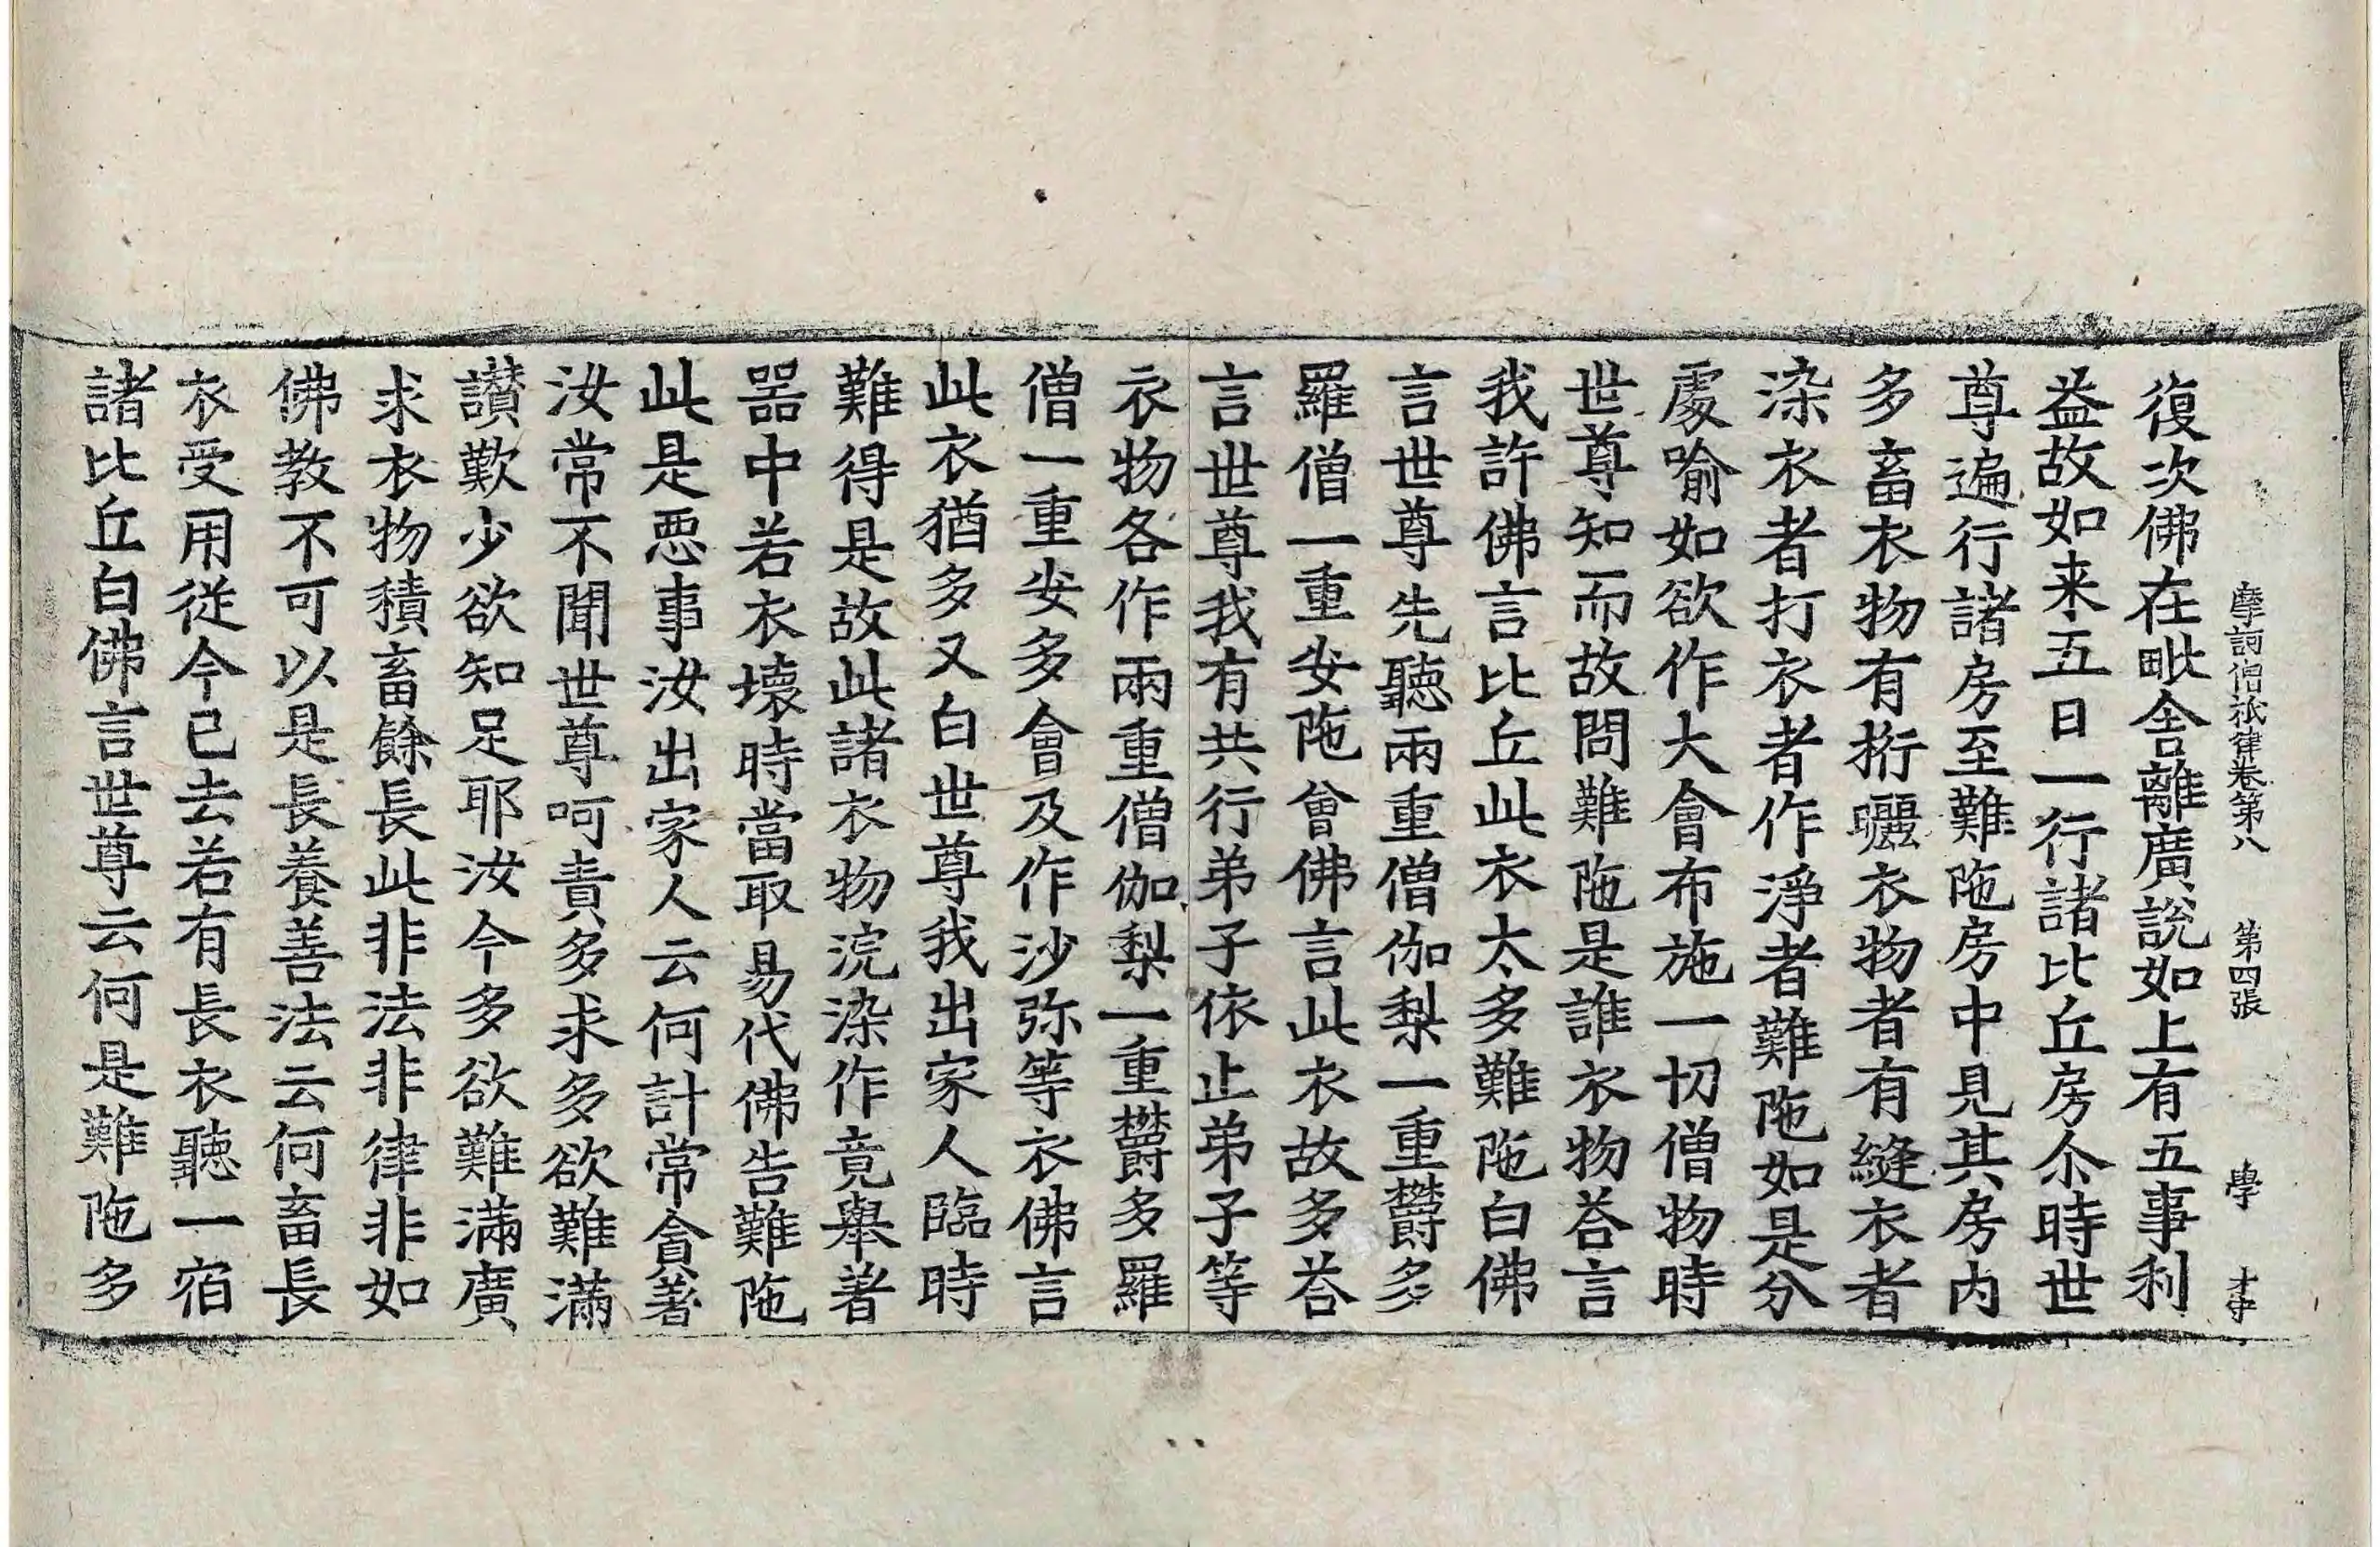 摩訶僧祇律卷第八 第四張 學
復次佛在毗舍離廣說如上有五事利
益故如来五日一行諸比丘房尒時世
尊遍行諸房至難陁房中見其房内
多畜衣物有桁曬衣物者有縫衣者
染衣者打衣者作淨者難陁如是分
處喻如欲作大會布施一切僧物時
世尊知而故問難陁是誰衣物荅言
我許佛言比丘此衣太多難陁白佛
言世尊先聽兩重僧伽梨一重欝多
羅僧一重安陁會佛言此衣故多荅
言世尊我有共行弟子依止弟子等
衣物各作兩重僧伽梨一重欝多羅
僧一重安多會及作沙弥等衣佛言
此衣猶多又白世尊我出家人臨時
難得是故此諸衣物浣染作竟舉著
器中若衣壞時當取易代佛告難陁
此是惡事汝出家人云何計常貪著
汝常不聞世尊呵責多求多欲難滿
讃歎少欲知足耶汝今多欲難滿廣
求衣物積畜餘長此非法非律非如
佛教不可以是長養善法云何畜長
衣受用從今已去若有長衣聽一宿
諸比丘白佛言世尊云何是難陁多